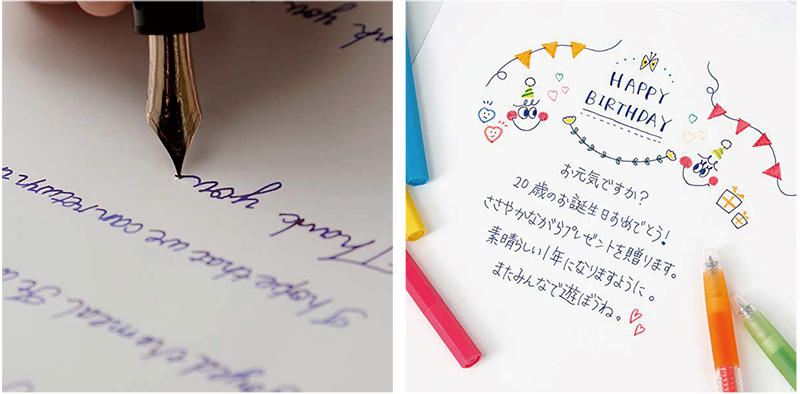 Thank you
I hope that we can return
HAPPY
BIRTHDAY
お元気ですか?
20歳のお誕生日おめでとう!
ささやかながらプレゼントを贈ります。
素晴らしい1年になりますように。
またみんなで遊ぼうね。